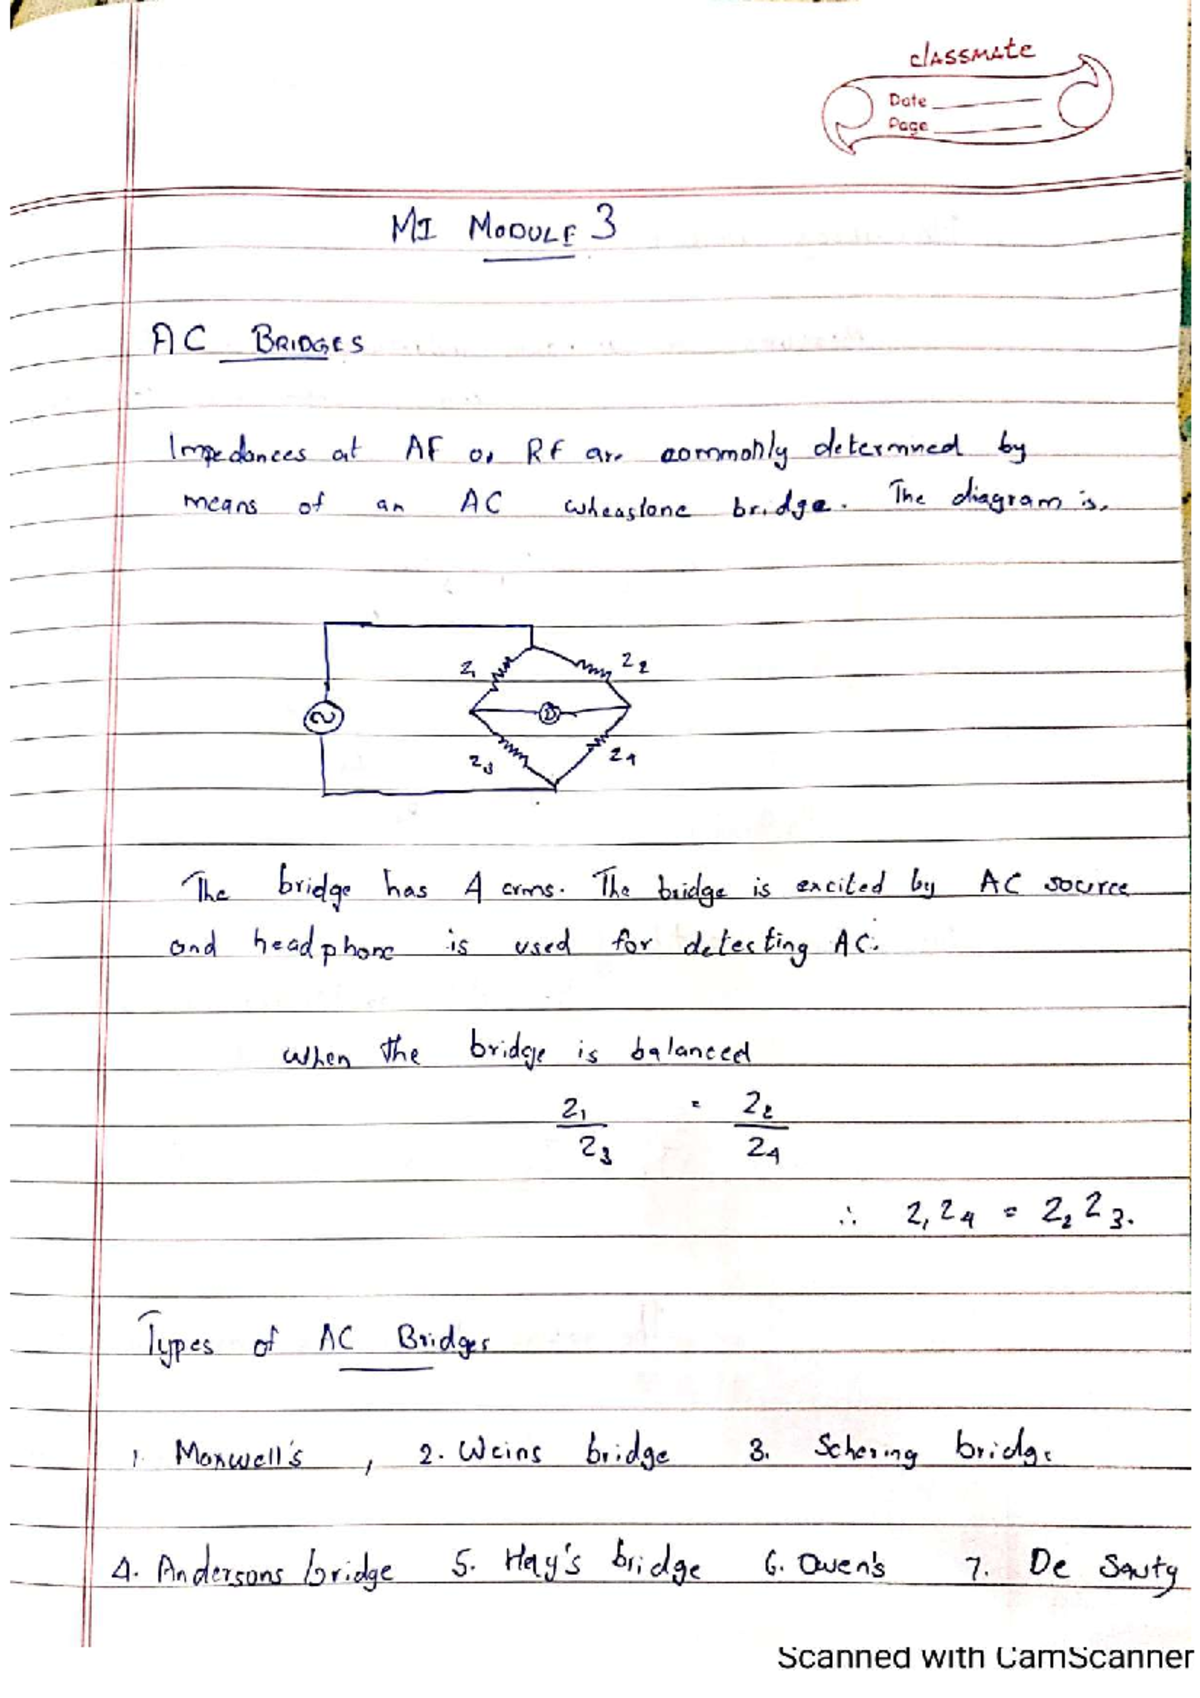 classmate
Date
Page
MI MODULE 3
AC BRIDGES
Impedances at AF or RF are commonly determned by
means of an AC wheastone bridge. The diagram is,
Z1
Z2
D
Z3
Z4
The bridge has 4 arms. The bridge is excited by AC source
and headphone is used for detecting AC.
when the bridge is balanced
Z1 = Z2
Z3 Z4
∴ Z1 Z4 = Z2 Z3.
Types of AC Bridges
1. Maxwell's , 2. Weins bridge 3. Schering bridge
4. Andersons bridge 5. Hay's bridge 6. Owen's 7. De Sauty
Scanned with CamScanner